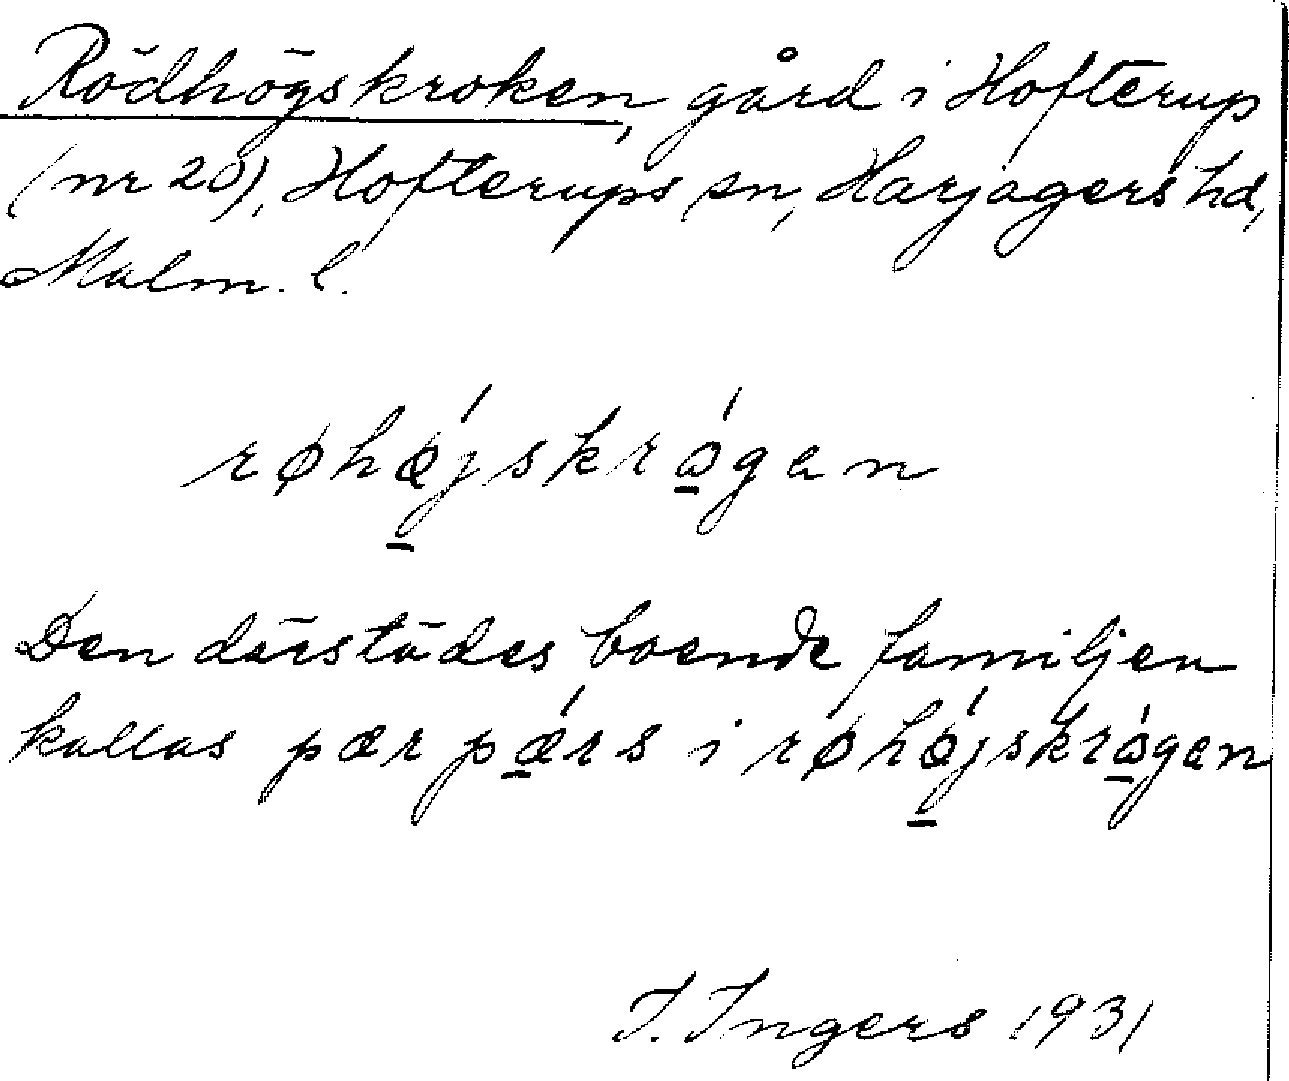 Rödhögskroken, gård i Hofterup
(nr 20), Hofterups sn, Harjagers hd,
Malm. l.
røhǿ̱jskrǻ̱gen
Den därstädes boende familjen
kallas pær pǽ̱rs i røhǿ̱jskrǻ̱gen
I. Ingers 1931